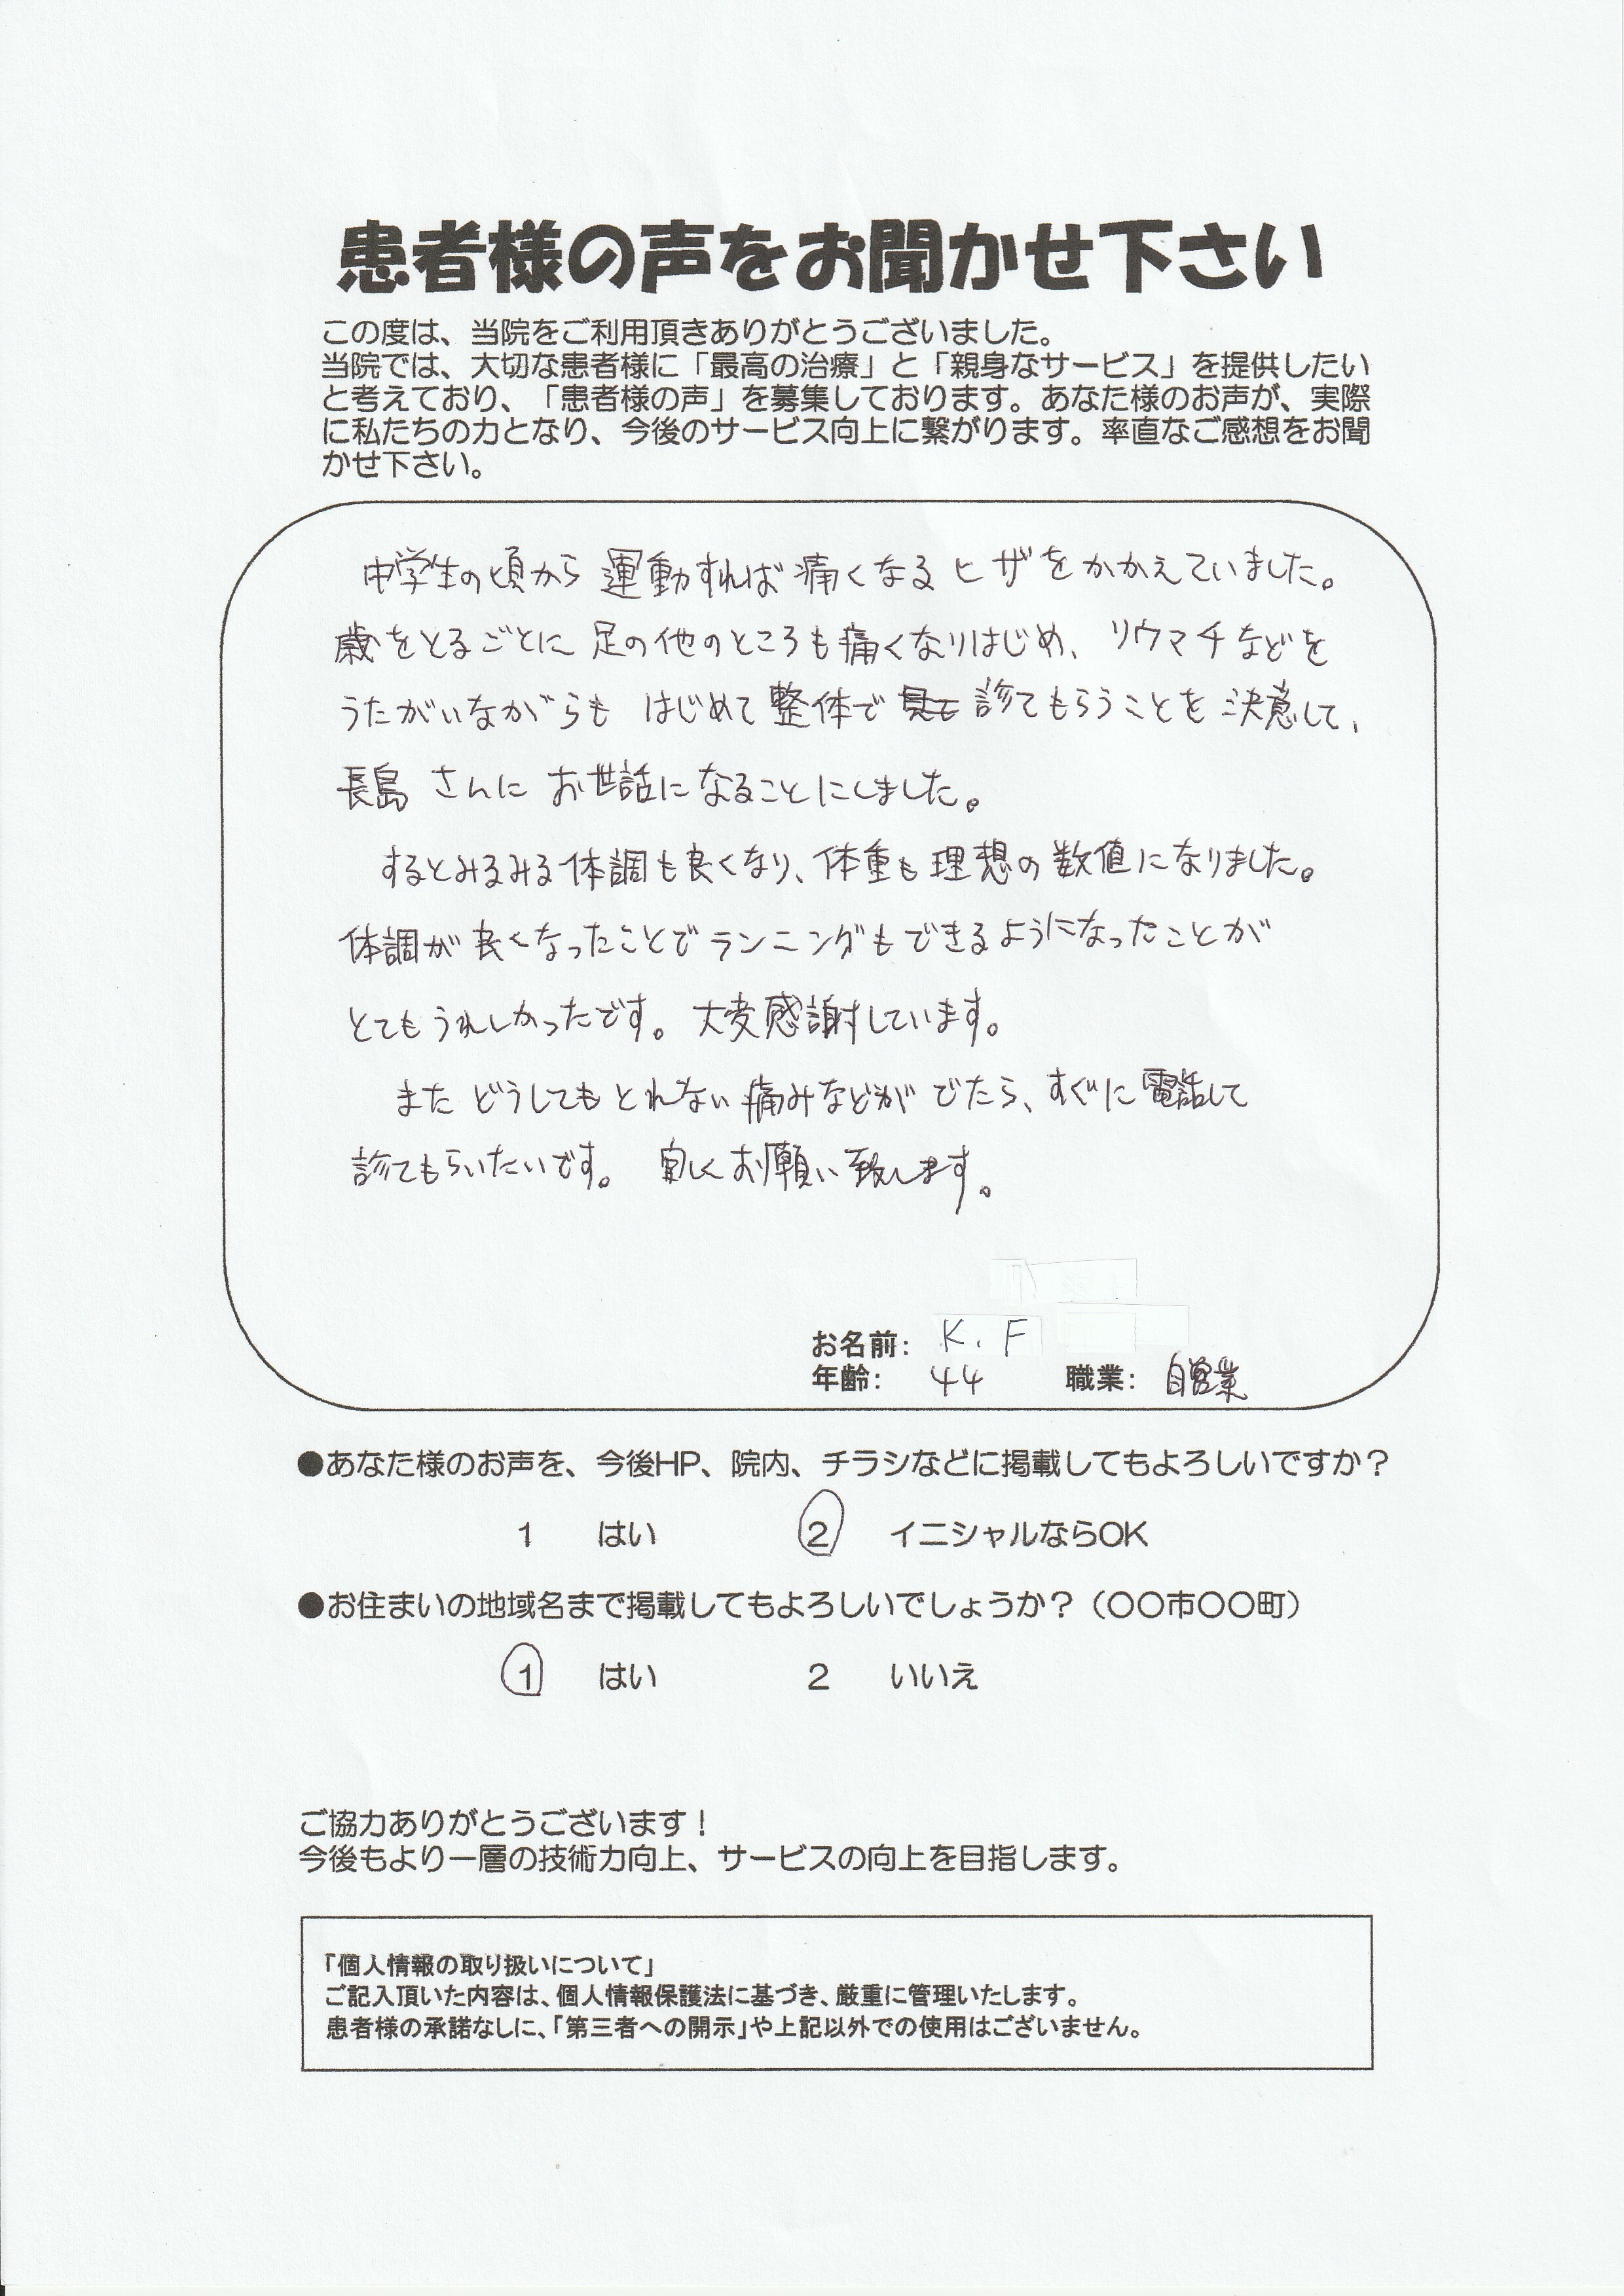 患者様の声をお聞かせ下さい
この度は、当院をご利用頂きありがとうございました。
当院では、大切な患者様に「最高の治療」と「親身なサービス」を提供したい
と考えており、「患者様の声」を募集しております。あなた様のお声が、実際
に私たちの力となり、今後のサービス向上に繋がります。率直なご感想をお聞
かせ下さい。
中学生の頃から運動すれば痛くなるヒザをかかえていました。
歳をとるごとに足の他のところも痛くなりはじめ、リウマチなどを
うたがいながらもはじめて整体で診てもらうことを決意して、
長島さんにお世話になることにしました。
するとみるみる体調も良くなり、体重も理想の数値になりました。
体調が良くなったことでランニングもできるようになったことが
とてもうれしかったです。大変感謝しています。
またどうしてもとれない痛みなどがでたら、すぐに電話して
診てもらいたいです。宜しくお願い致します。
お名前: K.F
年齢: 44 職業: 自営業
●あなた様のお声を、今後HP、院内、チラシなどに掲載してもよろしいですか?
1 はい 2 イニシャルならOK
●お住まいの地域名まで掲載してもよろしいでしょうか?(〇〇市〇〇町)
1 はい 2 いいえ
ご協力ありがとうございます!
今後もより一層の技術力向上、サービスの向上を目指します。
「個人情報の取り扱いについて」
ご記入頂いた内容は、個人情報保護法に基づき、厳重に管理いたします。
患者様の承諾なしに、「第三者への開示」や上記以外での使用はございません。